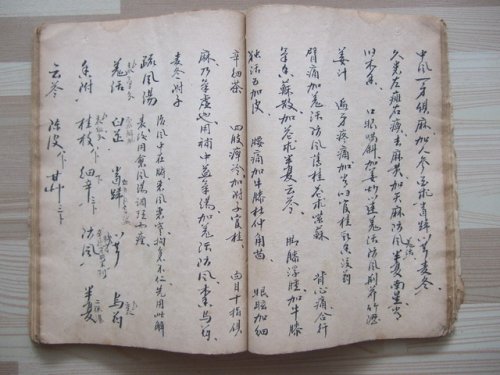 中風一身俱麻加人參白朮當歸川芎麥冬
左癱右瘓去麻黃加天麻防風羌活半夏南星當
木香 口眼喎斜加姜炒連羌活防風荊芥竹瀝
姜汁 遍身疼痛加當歸官桂乳香沒药
臂痛加羌活防風薄桂蒼朮紫蘇 背心痛合行
氣香蘇散加蒼朮半夏云苓 腳膝浮腫加牛膝
獨活五加皮 腰痛加牛膝杜仲角茴 眼眩加細
辛細茶 四肢痺冷加附子官桂 面目十指俱
麻乃氣虛也用補中益氣湯加羌活防風木香烏药
麥冬附子
疏風湯 治風中在腑惡風寒拘急不仁先用此解
表後用愈風湯調理而痊
羌活 白芷 當歸 川芎 烏药
香附 桂枝 細辛 防風 半夏
云苓 陳皮 甘草